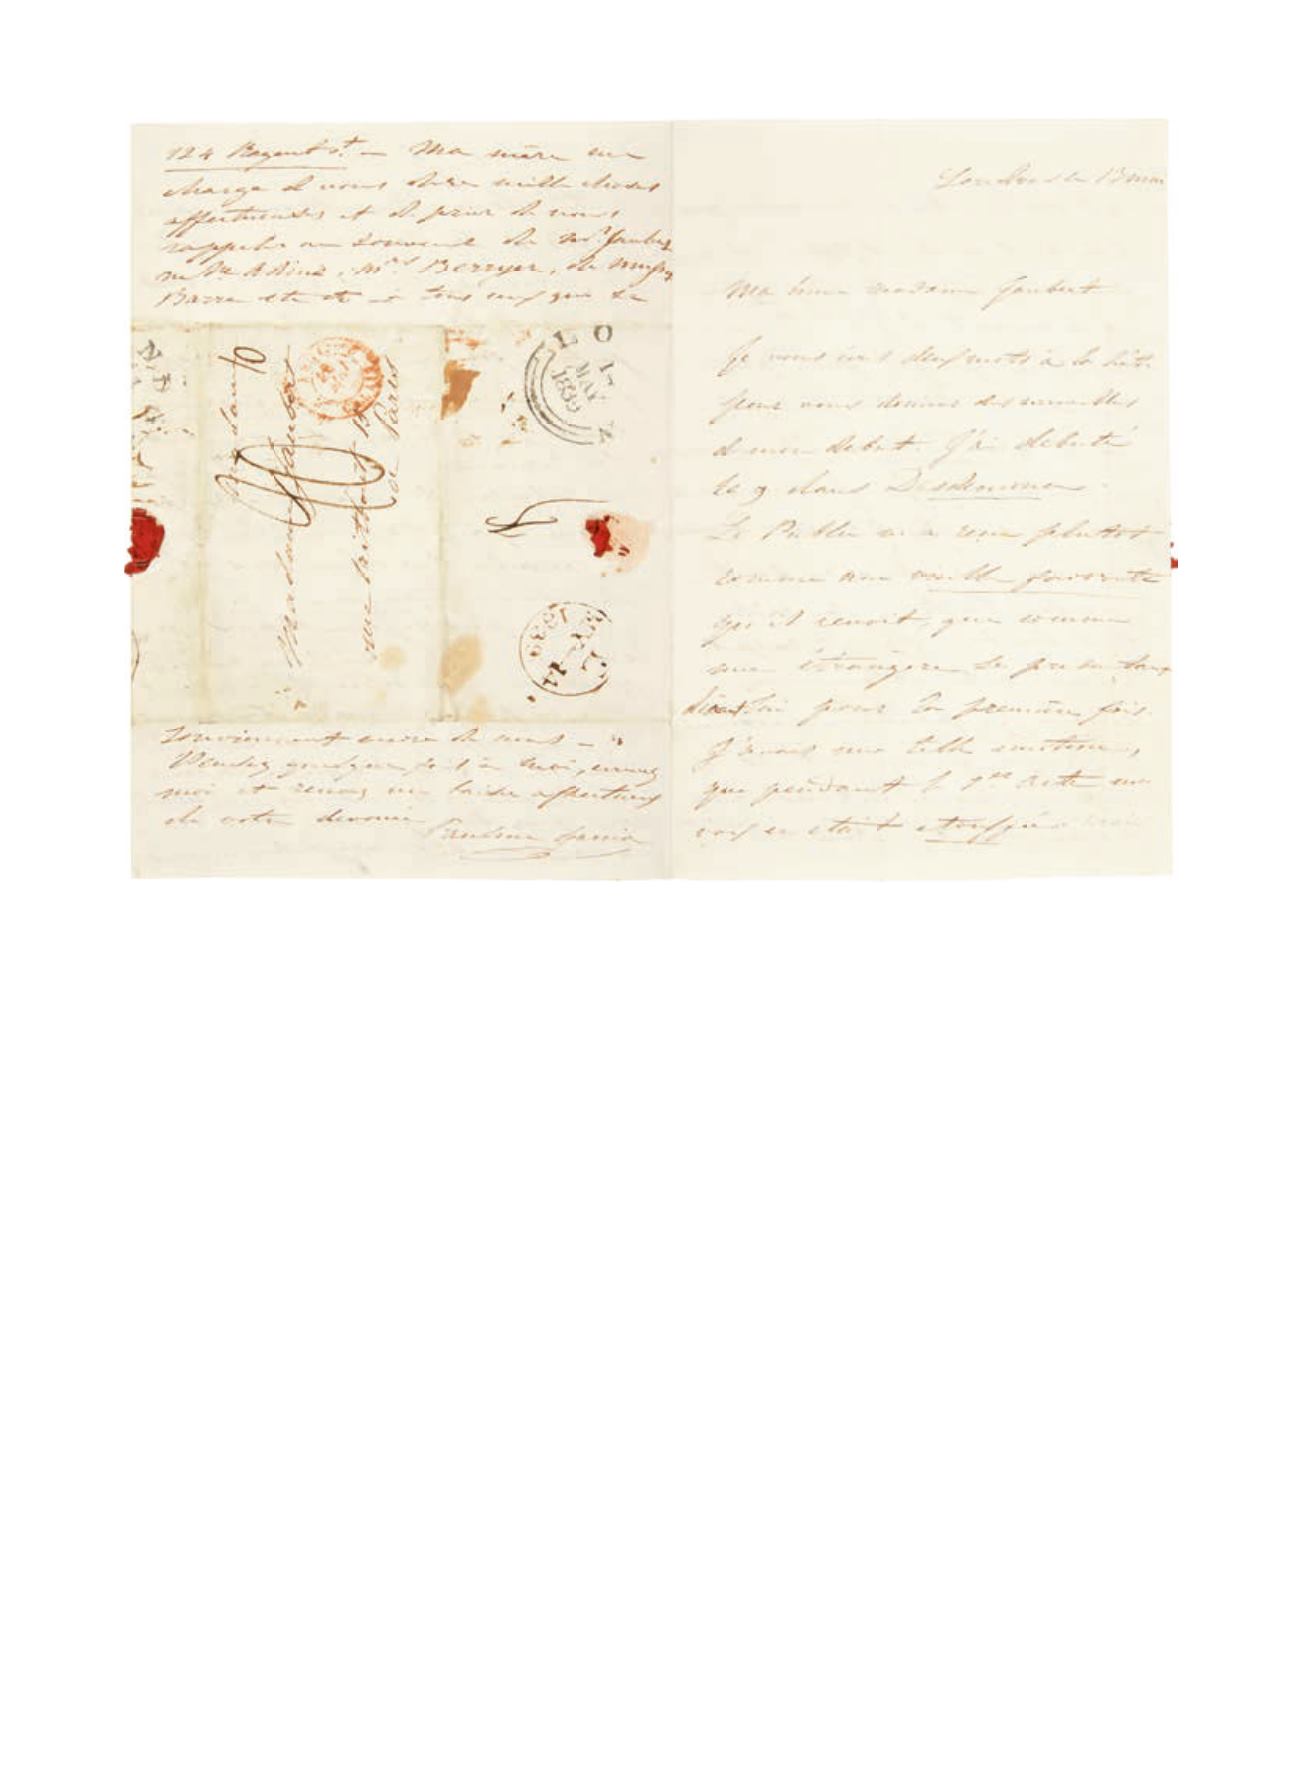 Londres le 13 mai
Ma bonne madame Jaubert
Je vous écris deux mots à la hâte
pour vous donner des nouvelles
de mon début. J'ai débuté
le 9 dans Desdemona.
Le Public m'a reçu plutot
comme une vieille favorite
qu'il revoit, que comme
une étrangère se présentant
devant lui pour la première fois.
J'avais une telle émotion,
que pendant le 1er acte ma
voix en était étouffée
124 Regent St. – Ma mère me
charge de vous dire mille choses
affectueuses et de prier de nous
rappeler au souvenir de Mr. Jaubert
Berryer, de
Barre etc etc à tous ceux qui se
LON
MAY
1839
Madame
Madame Jaubert
rue
Paris
1839
souviennent encore de nous –
Pensez quelque fois à moi, aimez
moi et recevez un baiser affectueux
de votre dévouée
Pauline Garcia